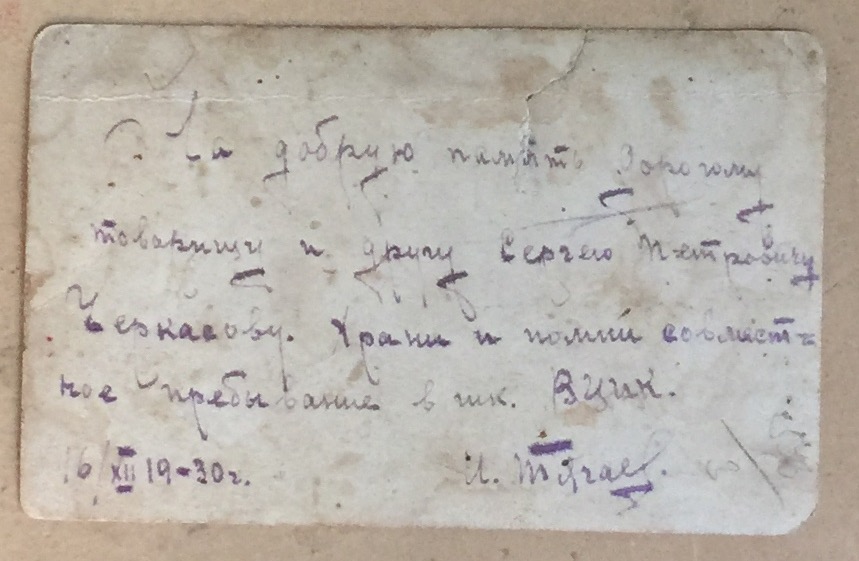 На добрую память Дорогому
товарищу и другу Сергею Петровичу
Черкасову. Храни и помни совмест=
ное пребывание в шк. ВЦИК.
16/XII 19-30г. И. Тягаев.